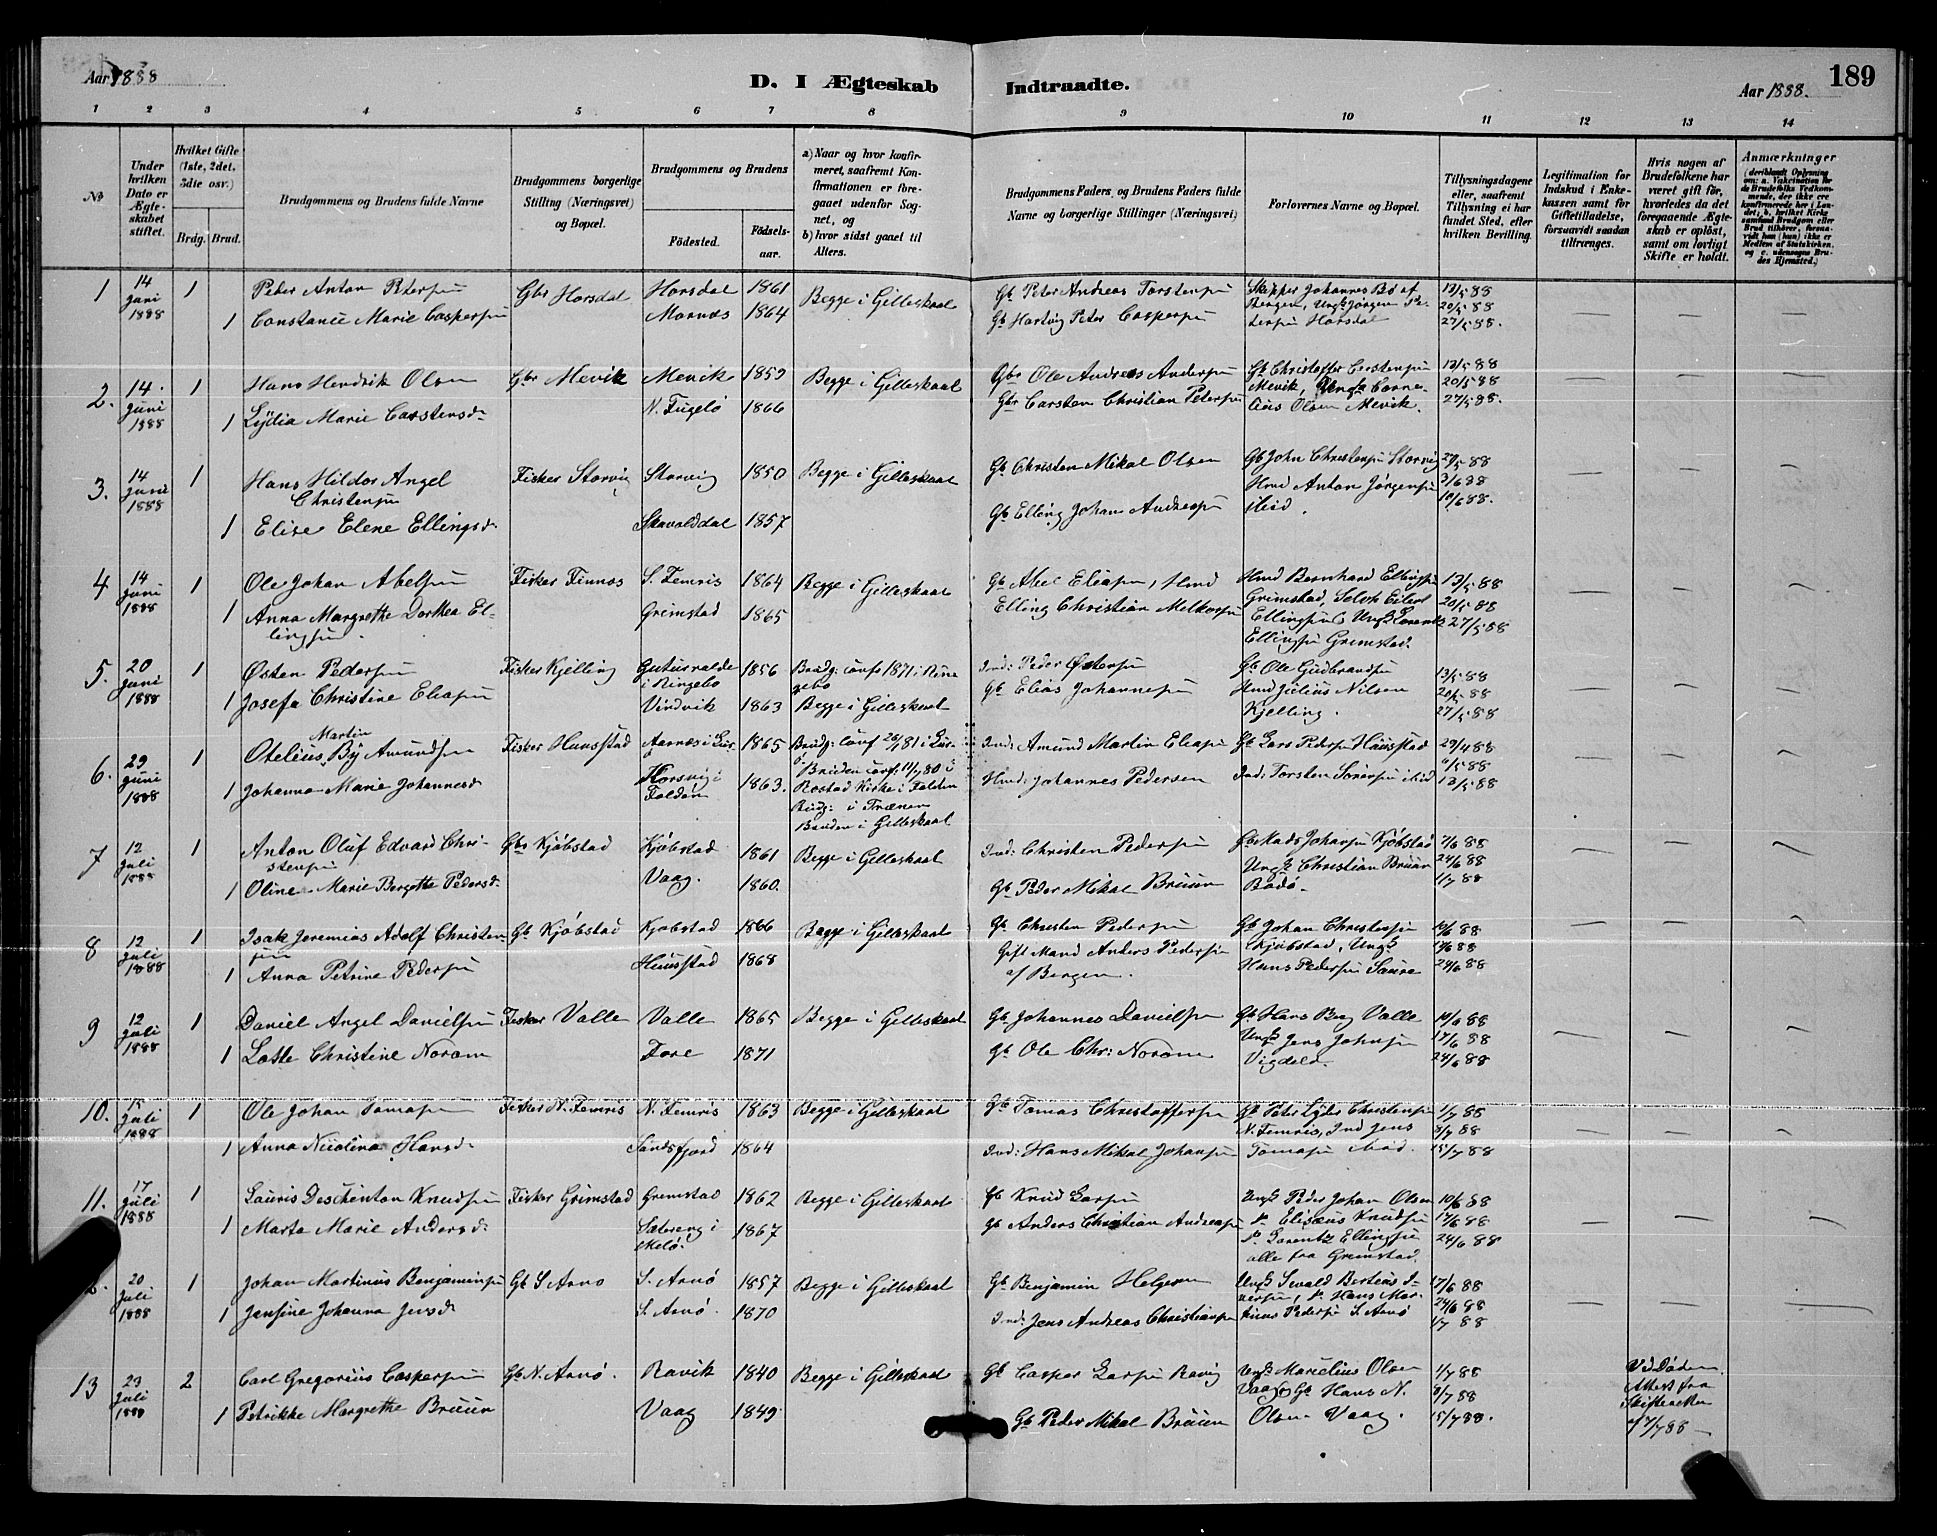 Aar 1888
D. I Ægteskab Indtraadte.
Aar 1888.
189
1 2 3 4 5 6 7 8 9 10 11 12 13 14
№
Under hvilken Dato er Ægteskabet stiftet.
Hvilket Gifte (1ste, 2det, 3die osv.)
Brdg. Brud.
Brudgommens og Brudens fulde Navne
Brudgommens borgerlige Stilling (Næringsvei) og Bopæl.
Brudgommens og Brudens
Födested.
Födselsaar.
a) Naar og hvor konfirmeret, saafremt Konfirmationen er foregaaet udenfor Sognet, og
b) hvor sidst gaaet til Alters.
Brudgommens Faders, og Brudens Faders fulde Navne og borgerlige Stillinger (Næringsvei)
Forlovernes Navne og Bopæl.
Tillysningsdagene eller, saafremt Tillysning ei har fundet Sted, efter hvilken Bevilling.
Legitimation for Indskud i Enkekassen samt for Giftetilladelse, forsaavidt saadan tiltrænges.
Hvis nogen af Brudefolkene har været gift før, hvorledes da det foregaaende Ægteskab er opløst, samt om lovligt Skifte er holdt.
Anmærkninger
1 14 Juni 1888 1 Peder Anton Petersen Gbr Horsdal Horsdal 1861 Begge i Gilleskaal Gb Peter Andreas Torstensen Skipper Johannes Bø af 13/5 88
1 Constance Marie Caspersen Mornes 1864 Gb Hartvig Peter Caspersen Bergen, Ungk Jørgen Pe- 20/5 88
tersen Horsdal 27/5 88.
2. 14. Juni 1888 1 Hans Hendrik Olsen Gbr Mevik Mevik 1859 Begge i Gilleskaal Gbr Ole Andreas Andersen Gb Christoffer Carstensen 13/5 88
1 Lydia Marie Carstensdr N. Fugelø 1866 Gbr Carsten Christian Petersen Mevik, Ungk Corne- 20/5 88
lius Olsen Mevik. 27/5 88.
3. 14 Juni 1888 1 Hans Hildor Angel Fisker Storvig Storvig 1850 Begge i Gilleskaal Gb Christen Mikal Olsen Gb John Christensen Storvig 27/5 88
Christensen Hmd Anton Jørgensen 3/6 88
1 Elise Elene Ellingsdr Skavolddal 1857 Gb Elling Johan Andreasen ibid. 10/6 88.
4 14 Juni 1888 1 Ole Johan Abelsen Fisker Finnes S. Femris 1864 Begge i Gilleskaal Gb Abel Eliasen, Hmd Hmd Bernhard Ellingsen 13/5 88
1 Anna Margrethe Dorthea El- Grimstad 1865 Elling Christian Melkersen Grimstad, Selvh Eilert 20/5 88
lingsen. Ellingsen, Ungk Lorentz 27/5 88
Ellingsen Grimstad.
5. 20 Juni 1888 1 Østen Pedersen Fisker Kjelling 1856 Brudg: conf 1871 i Rin- Ind: Peder Østensen Gb Ole Gudbrandsen 13/5 88
i Ringebo gebo
1 Josefa Christine Eliasen Vindvik 1863 Begge i Gilleskaal Gb Elias Johannesen Hmd Julius Nilsen 20/5 88
Kjelling. 27/5 88
6. 29 Juni 1888 Martin
Otelius By Amundsen Fisker Hunstad Aarnes i Lur- 1865 Brudg: conf 26/ 81 i Lur- Ind: Amund Martin Eliasen Gb Lars Pedersen Hunstad 29/4 88
Bruden conf: 11/7 80 i 6/5 88
1 Johanna Marie Johannesdr Korsvig i 1863. Rostad Kirke i Folden Hmd: Johannes Pedersen Ind: Torsten Sørensen ibid 13/5 88
Folden Brudg: i Trænen
Bruden i Gilleskaal
7 12 Juli 1888 1 Anton Oluf Edvard Chri- Gbr Kjøbstad Kjøbstad 1861 Begge i Gilleskaal Ind: Christen Pedersen Gb Mads Johansen Kjøbstad 7/6 88
stensen Ungk Christian Bruun 24/6 88
1 Oline Marie Bergette Pedersdr Vaag. 1860. Gb Peder Mikal Bruun Bodø. 1/7 88
8 12 Juli 1888 1 Isak Jeremias Adolf Christen- Gb Kjøbstad Kjøbstad 1866 Begge i Gilleskaal Gb Christen Pedersen Gb Johan Christensen 10/6 88
sen Gift Mand Anders Pedersen Kjøbstad, Ungk 17/6 88
1 Anna Petrine Pedersen Hunstad 1868 af Bergen. Hans Pedersen Saure 24/6 88
9 12 Juli 1888 1 Daniel Angel Danielsen Fisker Valle Valle 1865 Begge i Gilleskaal Gb Johannes Danielsen Gb Hans Berg Valle 10/6 88
Ungk Jens Johnsen 17/6 88
1 Lotte Christine Norøm Fore 1871 Gb Ole Chr: Norøm Vigdel. 24/6 88
10. 15 Juli 1888 1 Ole Johan Tomasen Fisker N. Femris N. Femris 1863 Begge i Gilleskaal Gb Tomas Christoffersen Gb Peter Lyder Christensen 1/7 88
N. Femris, Ind Jens 8/7 88
1 Anna Nicolina Hansdr Sandsfjord 1864 Ind: Hans Mikal Johansen Tomasen ibid. 15/7 88
11. 17 Juli 1888 1 Lauris Deschinton Knudsen Fisker Grimstad Grimstad 1862 Begge i Gilleskaal Gb Knud Larsen Ungk Peder Johan Olsen 10/6 88
1 Marta Marie Andersdr i Melø. 1867 Gb Anders Christian Andreasen Do Elisæus Knudsen 17/6 88
Do Lorentz Ellingsen 24/6 88
alle fra Grimstad.
2. 20 Juli 1888 1 Johan Martinus Benjaminsen Gb S. Arnø S. Arnø 1857 Begge i Gilleskaal Gb Benjamin Helgesen Ungk Sivald Bertius I- 17/6 88
versen, Do Hans Mar- 24/6 88
1 Jensine Johanna Jensdr S. Arnø. 1870 Ind: Jens Andreas Christiansen tinus Pedersen S. Arnø 1/7 88
13 23 Juli 1888 2 Carl Gregorius Caspersen Gb N. Arnø. Ravik 1840 Begge i Gilleskaal Gb Casper Larsen Ravig Ungk Marcelius Olsen 1/7 88 Ved Døden
Vaag, Gb Hans N. 8/7 88 Attest fra
1 Petrikke Margrethe Bruun Vaag 1849 Gb Peder Mikal Bruun Olsen Vaag. 15/7 88. Skifteretten
af 7/7 88